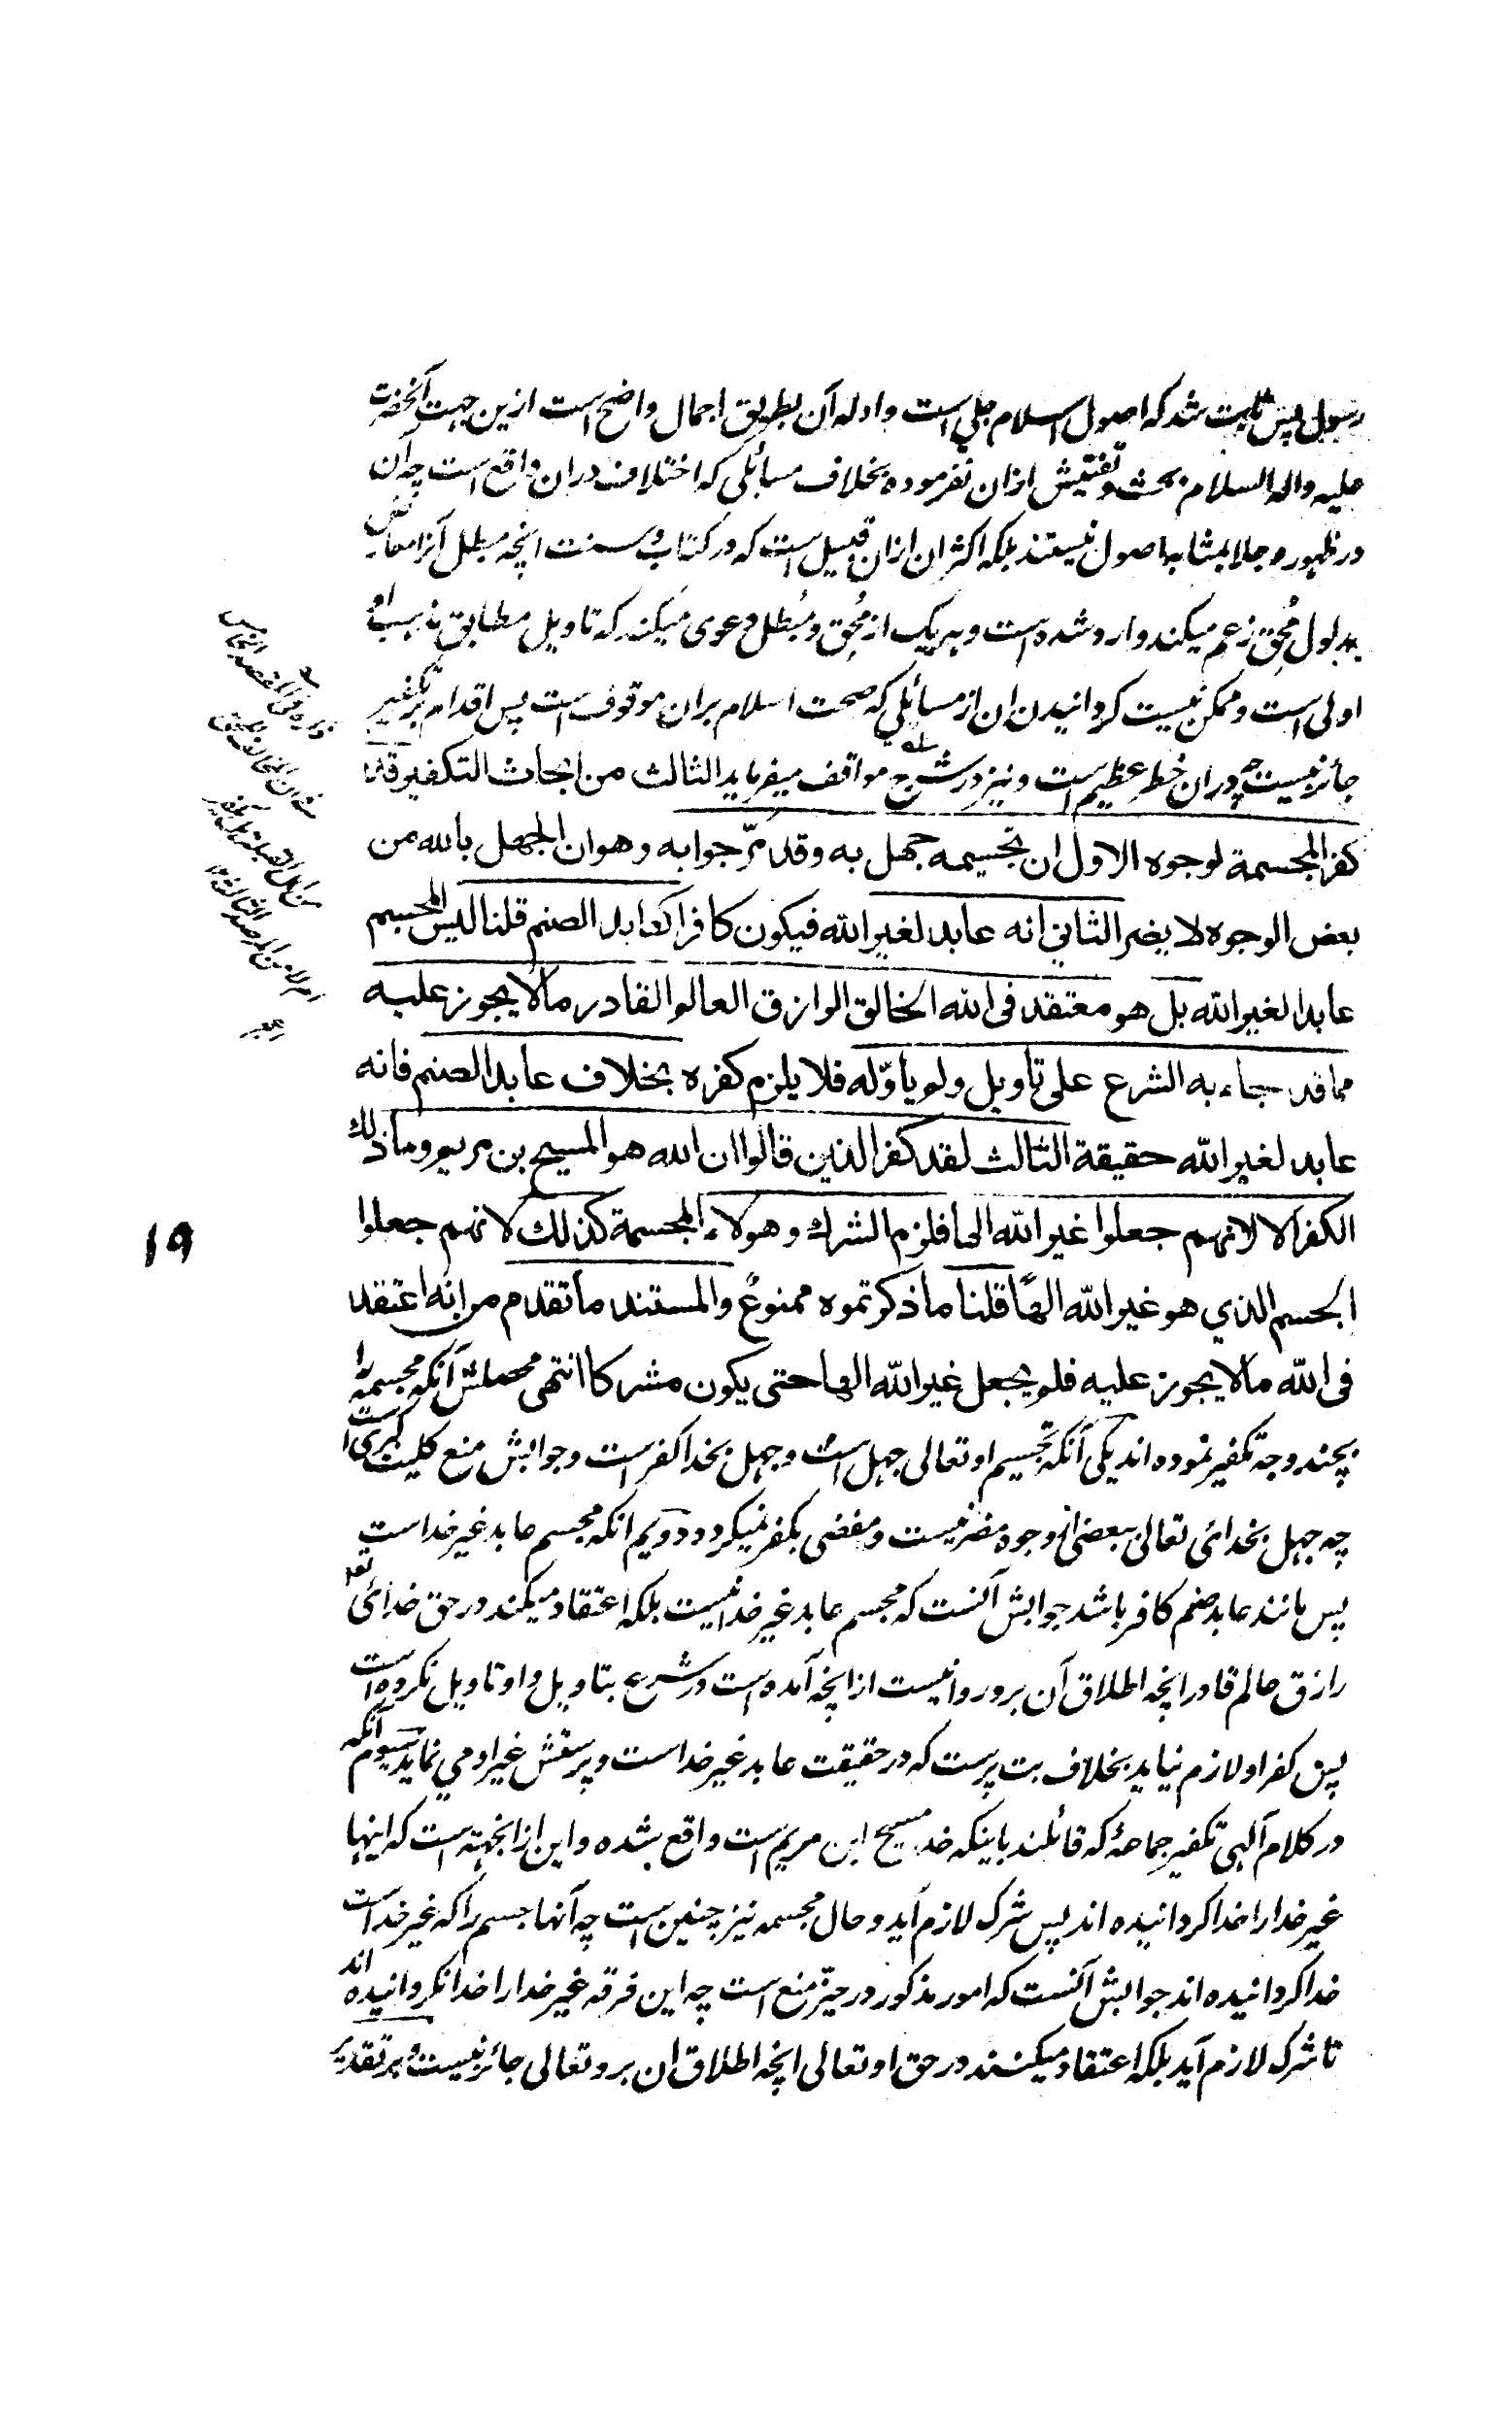 رسول پس ثابت شد که اصول اسلام جلی است و ادله آن بطریق اجمال واضح است ازین جهت آنحضرت
علیه واله السلام بحث و تفتیش ازان نفرموده بخلاف مسائلی که اختلاف دران واقع است چه آن
در ظهور و جلا بمثابه اصول نیستند بلکه اکثر ان ازان قبیل است که در کتاب و سنت انچه مبطل آنرا معارض
بدلول مُحِق زعم میکند وارد شده است و هر یک از مُحِق و مُبطل دعوی میکند که تاویل مطابق مذهب او
اولی است و ممکن نیست گردانیدن ان از مسائلی که صحت اسلام بران موقوف است پس اقدام بر تکفیر
جائز نیست چه دران خطر عظیم است و نیز در شرح مواقف میفرماید الثالث من ابحاث التکفیر قد
کفر المجسمة لوجوه الاول ان تجسیمه جهل به وقد مرّ جوابه وهو ان الجهل بالله من
بعض الوجوه لا یضر الثانی انه عابد لغیر الله فیکون کافرا کعابد الصنم قلنا لیس المجسم
عابدا لغیر الله بل هو معتقد فی الله الخالق الرازق العالم القادر ما لا یجوز علیه
مما قد جاء به الشرع علی تاویل ولم یأوّله فلا یلزم کفره بخلاف عابد الصنم فانه
عابد لغیر الله حقیقة الثالث لقد کفر الذین قالوا ان الله هو المسیح بن مریم وما ذلك
الکفر الا لانهم جعلوا غیر الله الها فلزم الشرك وهولاء المجسمة کذلك لانهم جعلوا
الجسم الذی هو غیر الله الهًا قلنا ما ذکرتموه ممنوعٌ والمستند ما تقدم من انه اعتقد
فی الله ما لا یجوز علیه فلم یجعل غیر الله الها حتی یکون مشرکا انتهی محصلش آنکه مجسمه را
بچند وجه تکفیر نموده اند یکی آنکه تجسیم او تعالی جهل است و جهل بخدا کفر است و جوابش منع کلیت کبری است
چه جهل بخدای تعالی ببعضی وجوه مضر نیست و مفضی بکفر نمیگردد دویم انکه مجسم عابد غیر خداست
پس مانند عابد صنم کافر باشد جوابش آنست که مجسم عابد غیر خدا نیست بلکه اعتقاد میکند در حق خدائی تعالی
رازق عالم قادر انچه اطلاق آن برو روا نیست از انچه آمده است در شرع بتاویل و او تاویل نکرده است
پس کفر او لازم نیاید بخلاف بت پرست که در حقیقت عابد غیر خداست و پرستش غیر او می نماید سیوم آنکه
در کلام آلهی تکفیر جماعهٔ که قائلند باینکه خدا مسیح ابن مریم است واقع شده و این ازانجهته است که اینها
غیر خدا را خدا گردانیده اند پس شرک لازم آید و حال مجسمه نیز چنین است چه آنها جسم را که غیر خداست
خدا گردانیده اند جوابش آنست که امور مذکور در حیّز منع است چه این فرقه غیر خدا را خدا نگردانیده اند
تا شرک لازم آید بلکه اعتقاد میکنند در حق او تعالی انچه اطلاق ان برو تعالی جائز نیست و بر تقدیر
۱۹